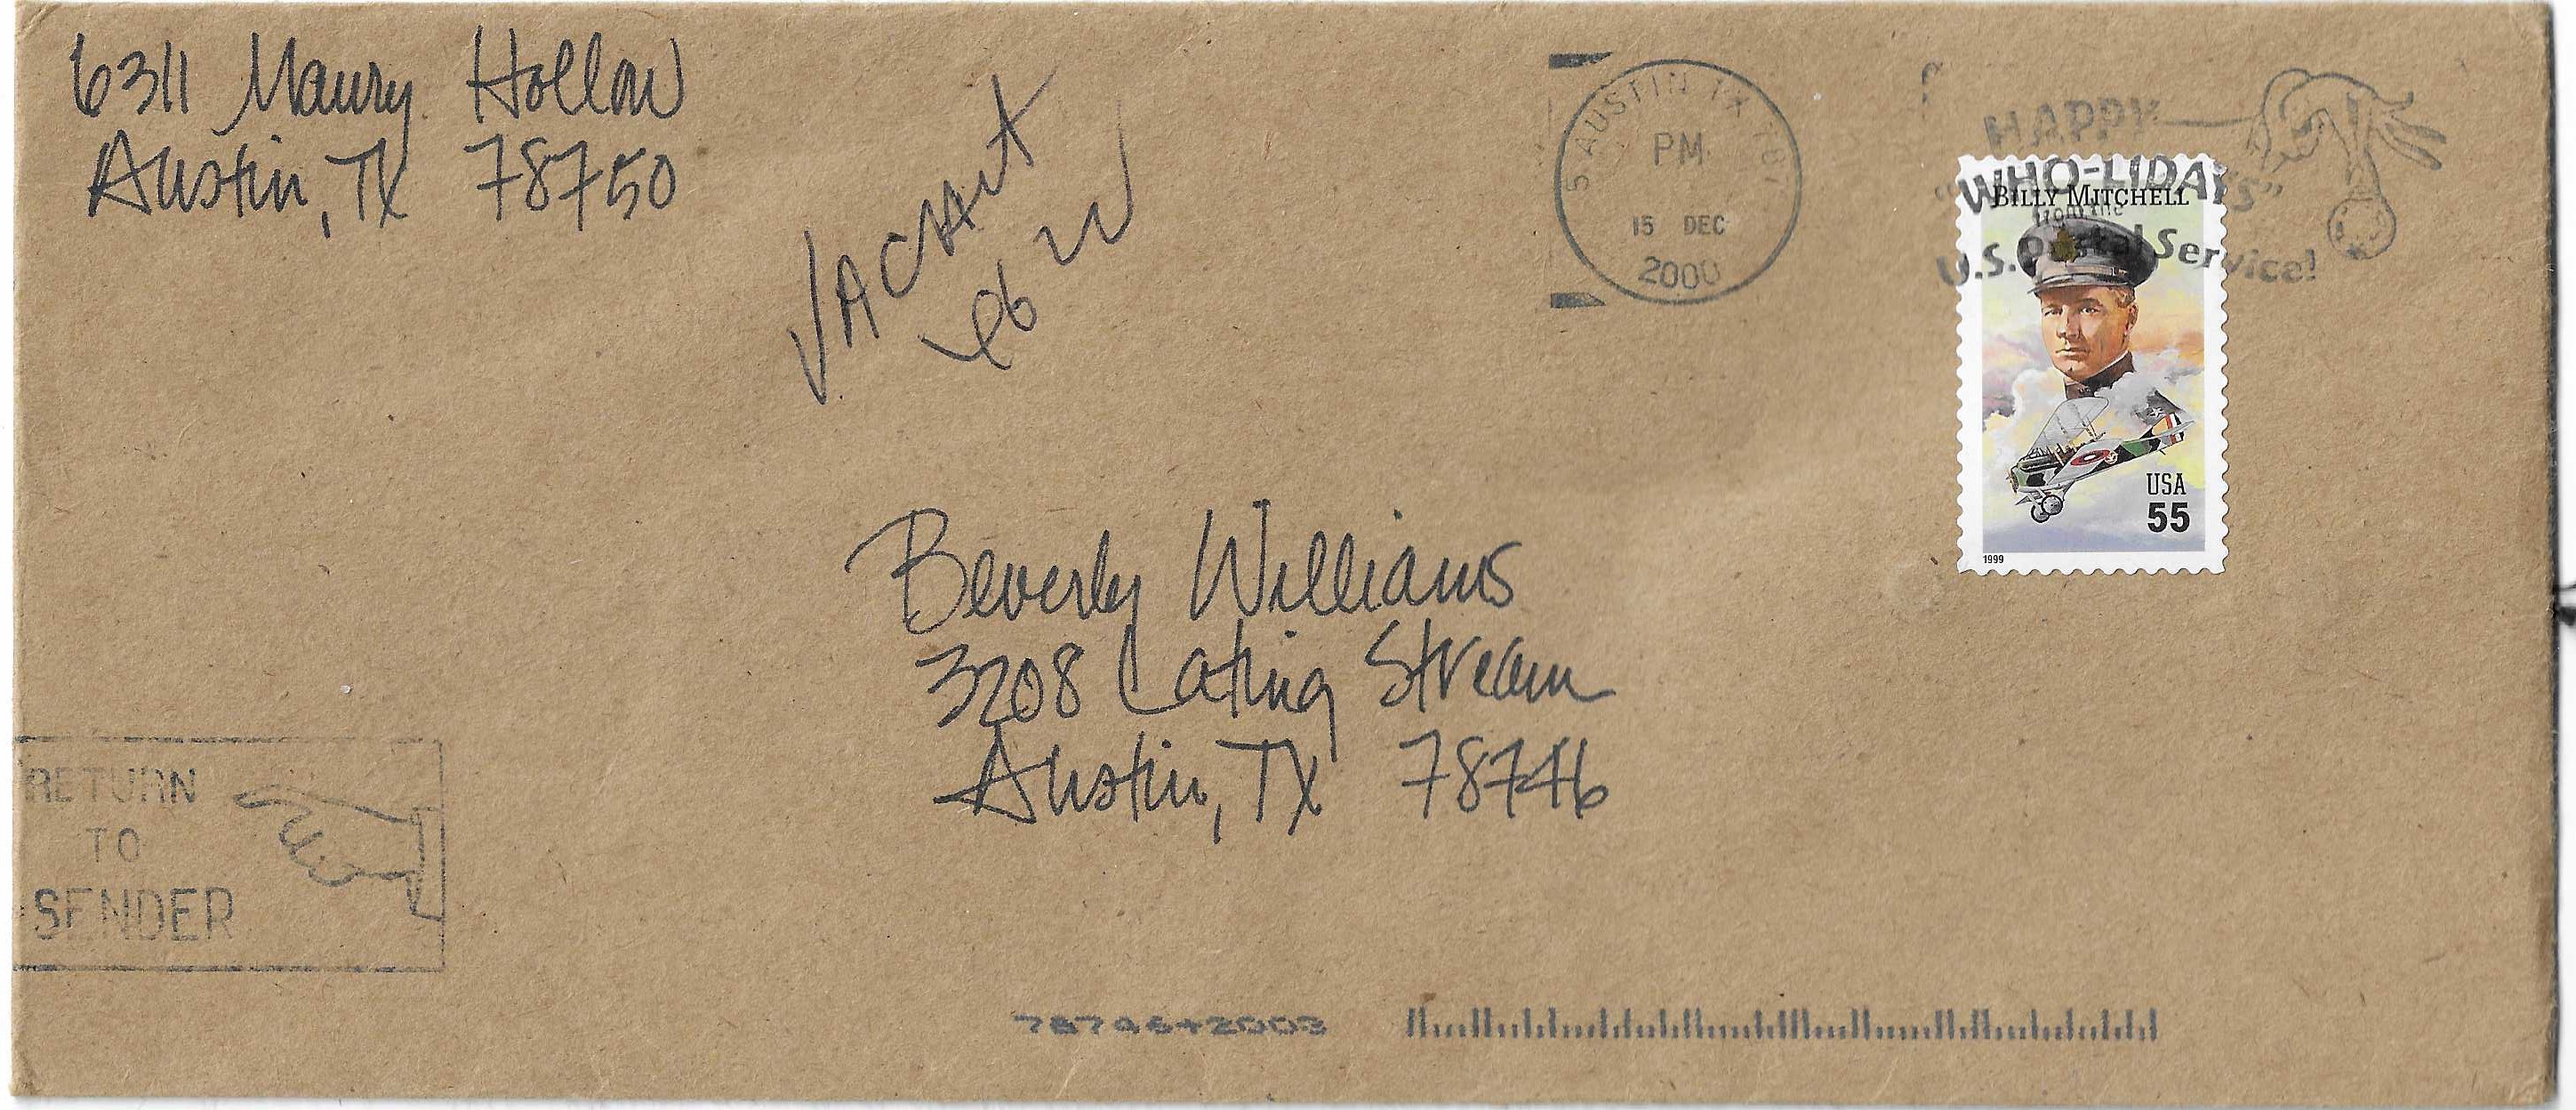 6311 Maury Hollow
Austin, TX 78750
VACANT
S AUSTIN TX 787
PM
15 DEC
2000
HAPPY
"WHO-LIDAYS"
from the
U.S. Postal Service!
BILLY MITCHELL
USA
55
1999
Beverly Williams
3208 Cating Stream
Austin, TX 78746
RETURN
TO
SENDER
78746+2003